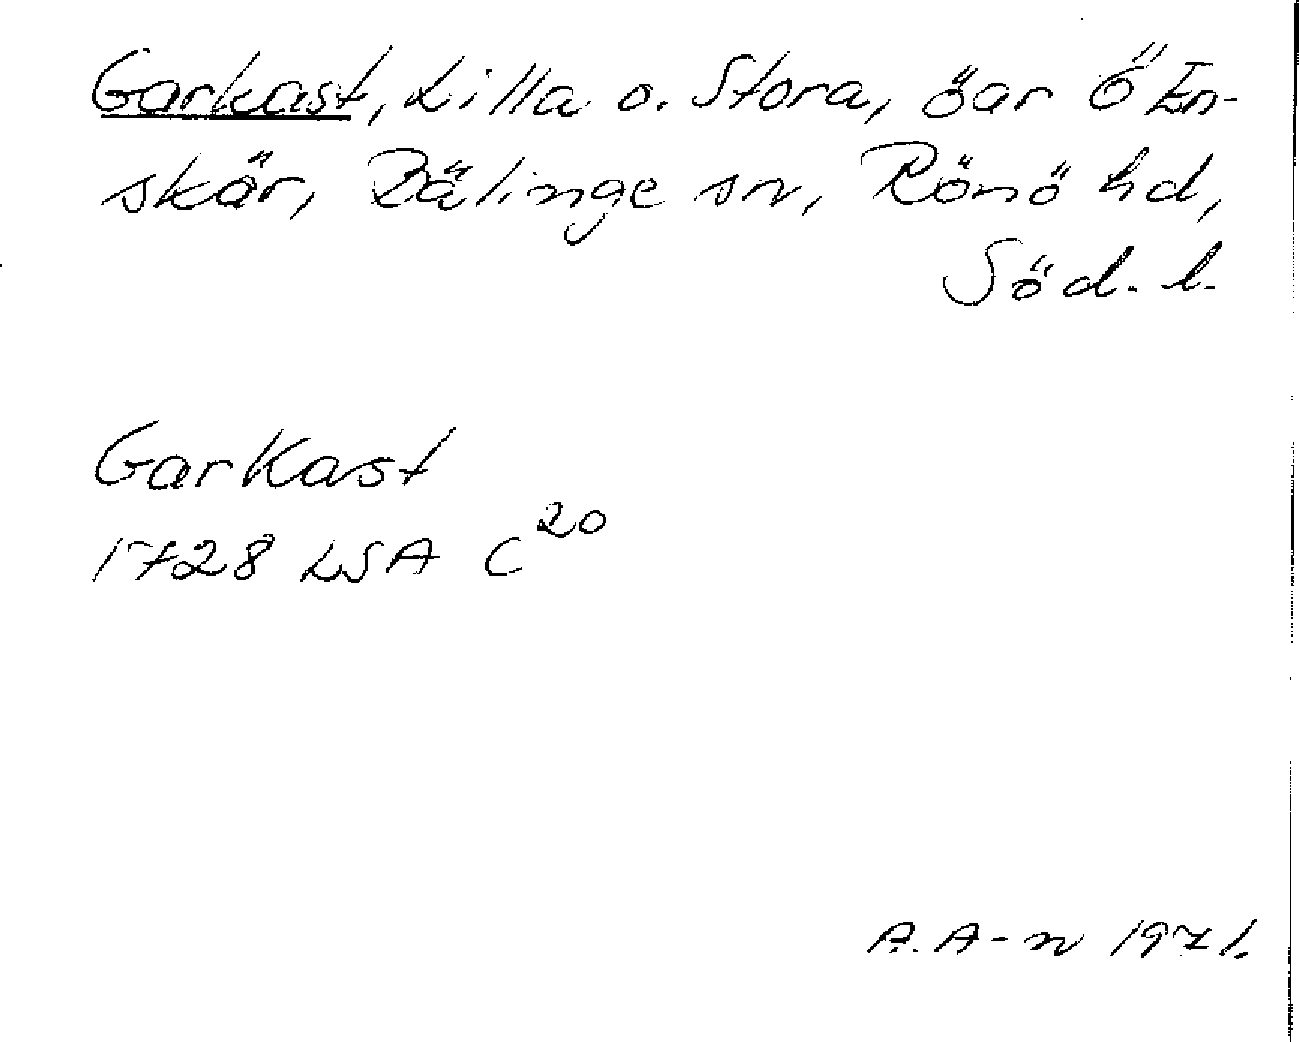 Garkast, Lilla o. Stora, öar Ö En-
skär, Bälinge sn, Rönö hd,
Söd. l.
GarKast
1728 LSA C20
A. A-n 1971.